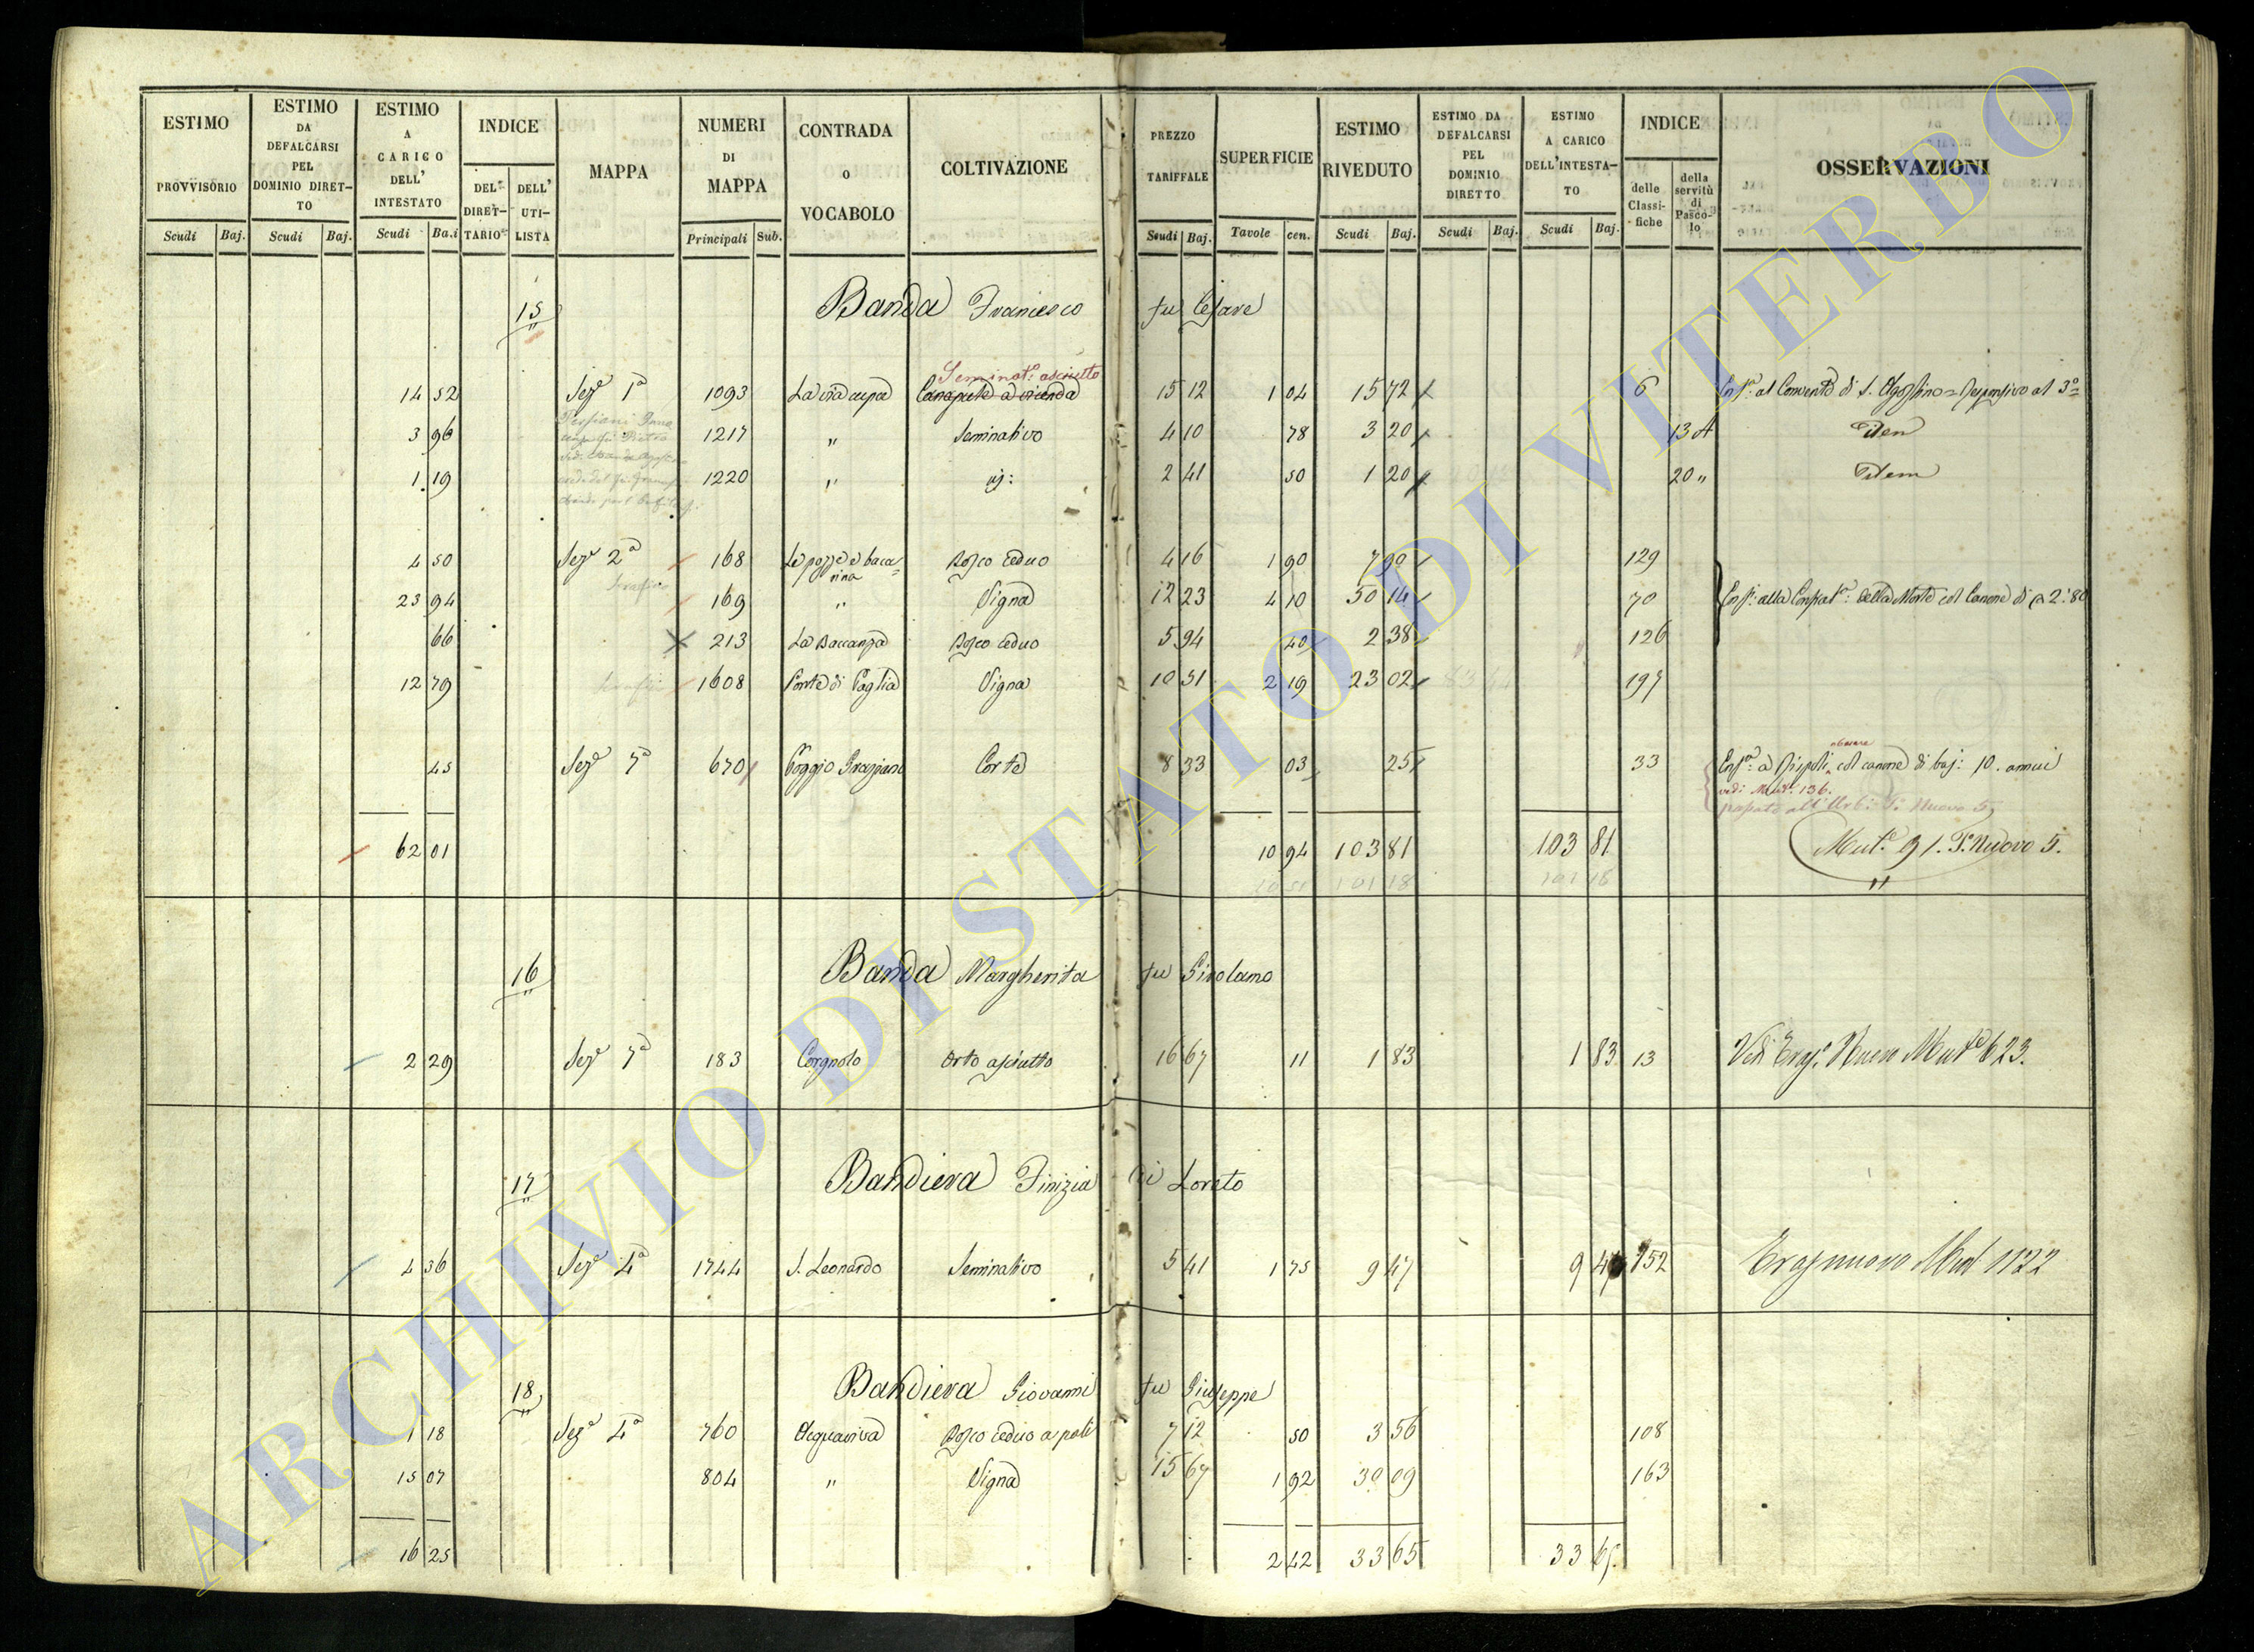 ESTIMO PROVVISORIO
ESTIMO DA DEFALCARSI PEL DOMINIO DIRETTO
ESTIMO A CARICO DELL' INTESTATO
INDICE
DEL DIRETTARIO
DELL' UTILISTA
MAPPA
NUMERI DI MAPPA
CONTRADA O VOCABOLO
COLTIVAZIONE
PREZZO TARIFFALE
SUPERFICIE
ESTIMO RIVEDUTO
ESTIMO DA DEFALCARSI PEL DOMINIO DIRETTO
ESTIMO A CARICO DELL'INTESTATO
INDICE
delle Classifiche
della servitù di Pascolo
OSSERVAZIONI
Scudi Baj. Scudi Baj. Scudi Ba.i Principali Sub. Scudi Baj. Tavole cen. Scudi Baj. Scudi Baj. Scudi Baj.
15 Banda Francesco fu Cesare
Seminat.o asciutto
14 52 Sez.e 1a 1093 La via cupa 15 12 1 04 15 72 6 Enf.a al Convento di S. Agostino = Responsivo al 3.o
3 96 1217 " Seminativo 4 10 78 3 20 13 A Idem
1 19 1220 " 2 41 50 1 20 20 " Idem
4 50 Sez.e 2a 168 Le pozze e baccanina Bosco ceduo 4 16 1 90 7 90 129
23 94 169 " Vigna 12 23 4 10 50 14 70 Enf.a alla Confrat.a della Morte col Canone di 2:80
66 213 La Baccanza Bosco ceduo 5 94 40 2 38 126
12 79 1608 Ponte di Paglia Vigna 10 51 2 19 23 02 197
45 Sez.e 7a 670 Poggio Graziano Corte 8 33 03 25 33 col canone di baj: 10. annui
vedi 136.
62 01 10 94 103 81 103 81 Mut.e 91. T. Nuovo 5.
10 51 101 18 101 18
16 Banda Margherita fu Girolamo
2 29 Sez.e 7a 183 Corgnolo Orto asciutto 16 67 11 1 83 1 83 13 Vedi Trasp. Nuovo Mut.e 623.
17 Bandiera Finizia di Loreto
4 36 Sez.e 4a 1744 S. Leonardo Seminativo 5 41 1 75 9 47 9 47 152 Trasp nuovo Mut 1122
18 Bandiera Giovanni fu Giuseppe
1 18 Sez.e 4a 760 Acquaviva Bosco ceduo a pali 7 12 50 3 56 108
15 07 804 " Vigna 15 67 1 92 30 09 163
16 25 2 42 33 65 33 65
ARCHIVIO DI STATO DI VITERBO